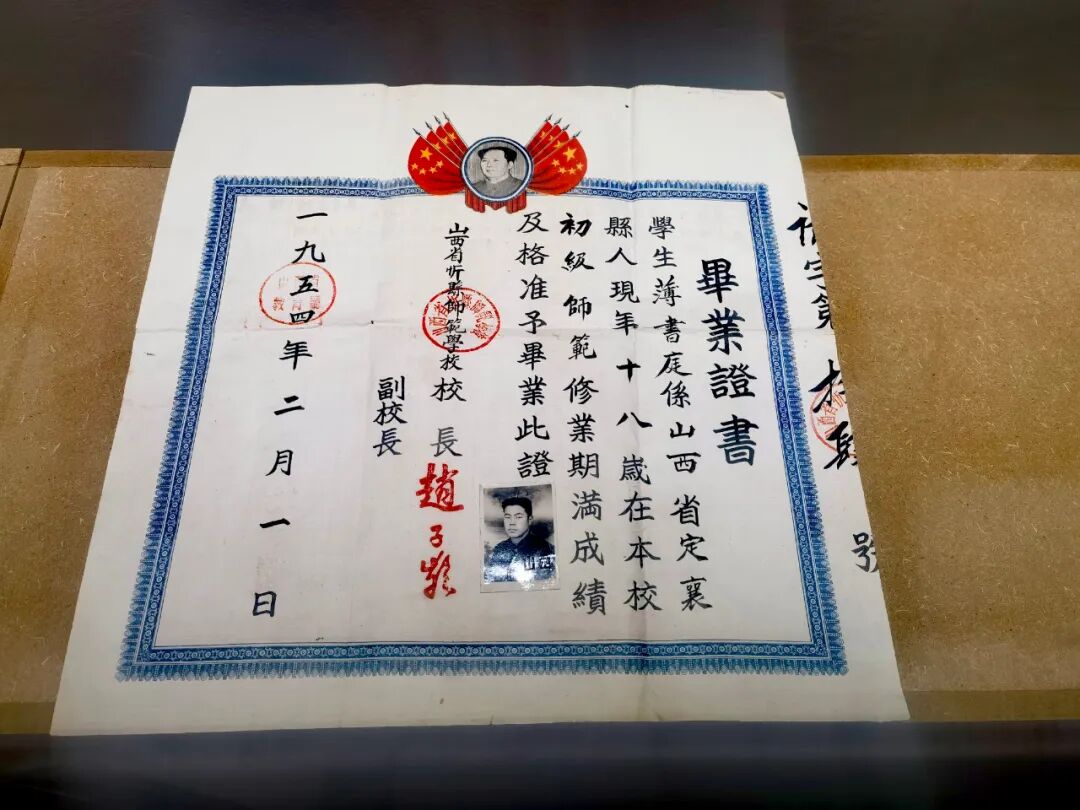 畢業證書
學生薄書庭係山西省定襄
縣人現年十八歲在本校
初級師範修業期滿成績
及格准予畢業此證
山西省忻縣師範學校校長趙子
副校長
一九五四年二月一日
號